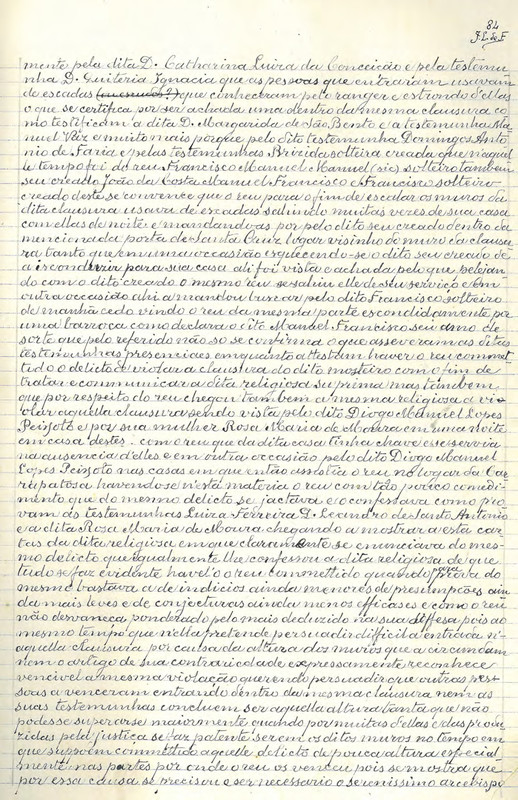 84
J. L. & F
mente pela dita D. Catharina Luiza da Conceição e pela testemu
nha D. Quiteria Ignacia que as pessoas que entraram usavam
de escadas que conheceram pelo ranger e estrondo d'ellas
o que se certifica por ser achada uma dentro da mesma clausura co
mo testificam a dita D. Margarida de São Bento e a testemunha Ma
nuel Vaz e muito mais porque pelo dito testemunha Domingos Anto
nio de Faria e pelas testemunhas Brizida solteira creada que n'aquel
le tempo foi do reu Francisco Manuel Manuel (sic) solteiro tambem
seu creado João da Costa Manuel Francisco e Francisco solteiro
creado deste se convence que o reu para o fim de escalar os muros da
dita clausura usava de escadas sahindo muitas vezes de sua casa
com ellas de noite e mandando-as por pelo dito seu creado dentro da
mencionada porta de Santa Cruz logar visinho do muro da clausu
ra tanto que em uma occasião esquecendo-se o dito seu creado de
a ir conduzir para sua casa ali foi vista e achada pelo que pelejan
do com o dito creado o mesmo reu se sahiu elle do seu serviço e em
outra occasião ahi a mandou buscar pelo dito Francisco solteiro
de manhã cedo vindo o reu da mesma parte escondidamente por
uma barroca como declara o dito Manuel Francisco seu amo de
sorte que pelo referido não só se confirma o que asseveram as ditas
testemunhas presenciaes emquanto attestam haver o reu commet
tido o delicto de violar a clausura do dito mosteiro com o fim de
tratar e communicar a dita religiosa sua prima mas tambem
que por respeito do reu chegou tambem a mesma religiosa a vi
olar aquella clausura sendo vista pelo dito Diogo Manuel Lopes
Peixoto e por sua mulher Rosa Maria de Moura em uma noite
em casa destes com o reu que da dita casa tinha chave e se servia
na ausencia d'elles e em outra occasião pelo dito Diogo Manuel
Lopes Peixoto nas casas em que então assistia o reu no logar da Car
rapatosa havendo-se n'esta materia o reu com tão pouco comedi
mento que do mesmo delicto se jactava e o confessava como pro
vam as testemunhas Luiza Ferreira D. Leandro de Santo Antonio
e a dita Rosa Maria de Moura chegando a mostrar a esta car
tas da dita religiosa em que claramente se enunciava do mes
mo delicto que egualmente lhe confessou a dita religiosa de que
tudo se faz evidente havel'o o reu commettido quando para prova do
mesmo bastava a de indicios ainda menores de presumpções ain
da mais leves e de conjecturas ainda menos efficases e como o reu
não desvaneça ponderado pelo mais deduzido na sua deffesa pois ao
mesmo tempo que n'ella pretende persuadir difficil a entrada n'-
aquella clausura por causa da altura dos muros que a circumdam
n'um o artigo de sua contrariedade expressamente reconhece
vencivel a mesma violação querendo persuadir que outras pes
soas a venceram entrando dentro da mesma clausura nem as
suas testemunhas concluem ser aquella altura tanta que não
podesse superar-se maiormente quando por muitas d'ellas e das produ
zidas pela justiça se faz patente serem os ditos muros no tempo em
que suppõem commettido aquelle delicto de pouca altura especial
mente nas partes por onde o reu os venceu pois se mostra que
por essa causa se precisou e ser necessario o serenissimo arcebispo